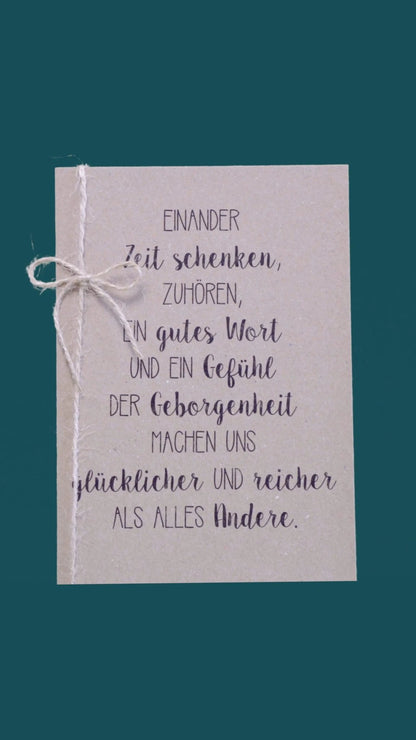 EINANDER
Zeit schenken,
ZUHÖREN,
EIN gutes Wort
UND EIN Gefühl
DER Geborgenheit
MACHEN UNS
glücklicher UND reicher
ALS ALLES Andere.